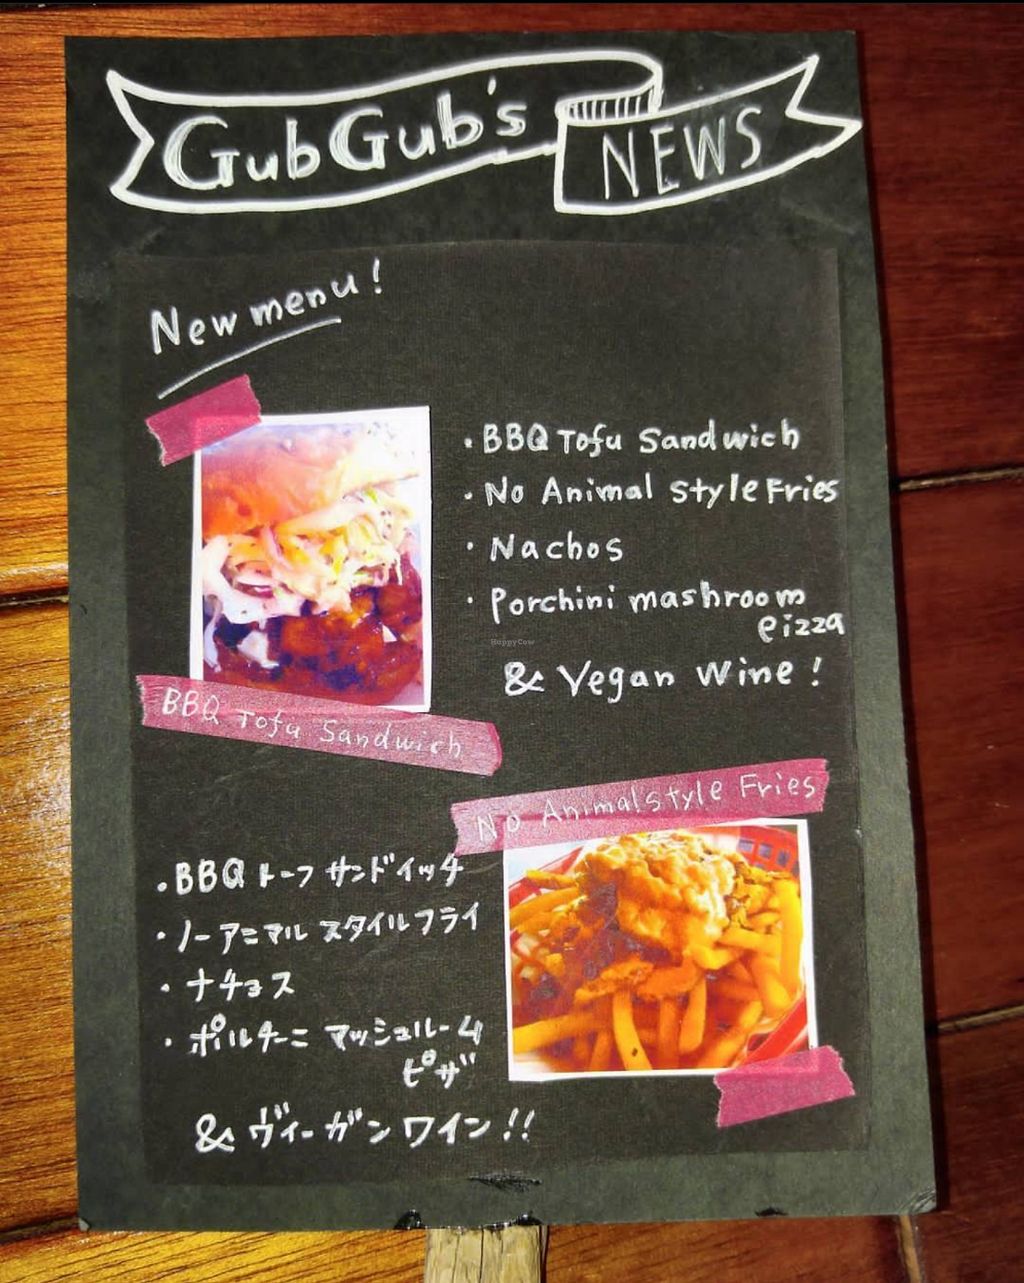 GubGub's NEWS
New menu!
・BBQ Tofu Sandwich
・No Animal Style Fries
・Nachos
・Porchini mashroom
Pizza
& Vegan Wine!
HappyCow
BBQ Tofu Sandwich
No Animal style Fries
・BBQ トーフ サンドイッチ
・ノーアニマル スタイルフライ
・ナチョス
・ポルチーニ マッシュルーム
ピザ
& ヴィーガン ワイン!!